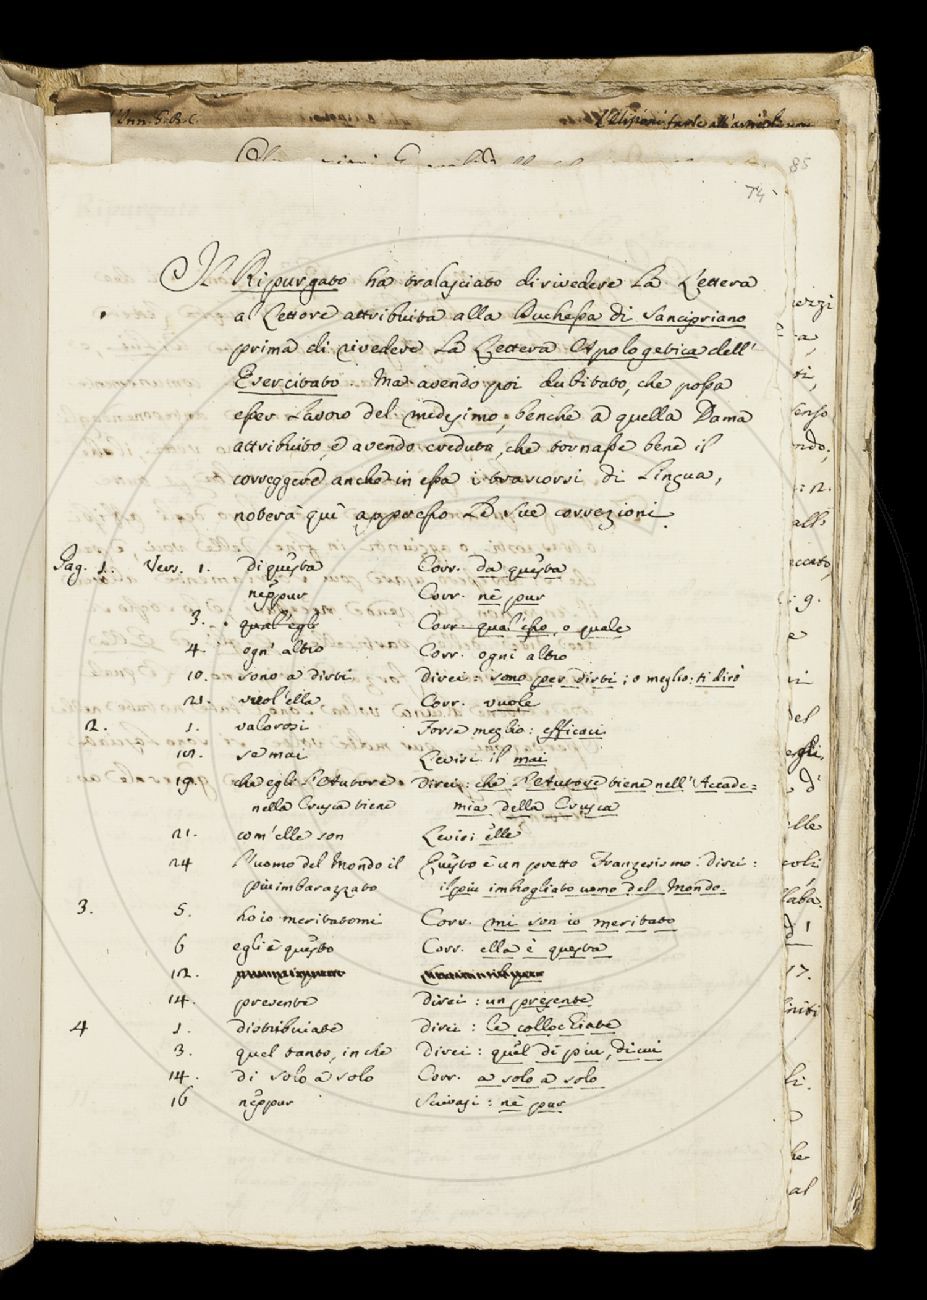 74
85
Il Ripurgato ha tralasciato di rivedere La Lettera
al Lettore attribuita alla Duchessa di Sancipriano
prima di rivedere La Lettera Apologetica dell'
Esercitato. Ma avendo poi dubitato, che possa
esser Lavoro del medesimo, benche a quella Dama
attribuito, e avendo creduto, che tornasse bene il
correggere anche in essa i trascorsi di Lingua,
noterà quì appresso Le sue correzioni.
Pag. 1. Vers. 1. di questa Corr. da questa
neppur Corr. nè pur
3. qual'egli Corr. qual'esso, o quale
4. ogn' altro Corr. ogni altro
10. sono a dirti direi: sono per dirti; o meglio: ti dirò
21. vuol'ella Corr. vuole
2. 1. valorosi Forse meglio: efficaci
se mai Levisi il mai
19. che egli L'Autore direi: che L'Autore viene nell'Accade=
nella Crusca viene mia della Crusca
21. com'elle son Levisi elle
24 L'uomo del Mondo il Questo è un pretto Franzesismo: direi:
più imbarazzato il più imbrogliato uomo del Mondo.
3. 5. ho io meritatomi Corr. mi son io meritato
6 egli è questo Corr. ella è questa
12.
14. presente direi: un presente
4 1. distribuiate direi: le collochiate
3. quel tanto, in che direi: quel di più, di cui
14. di solo a solo Corr. a solo a solo
16 neppur Scrivasi: nè pur